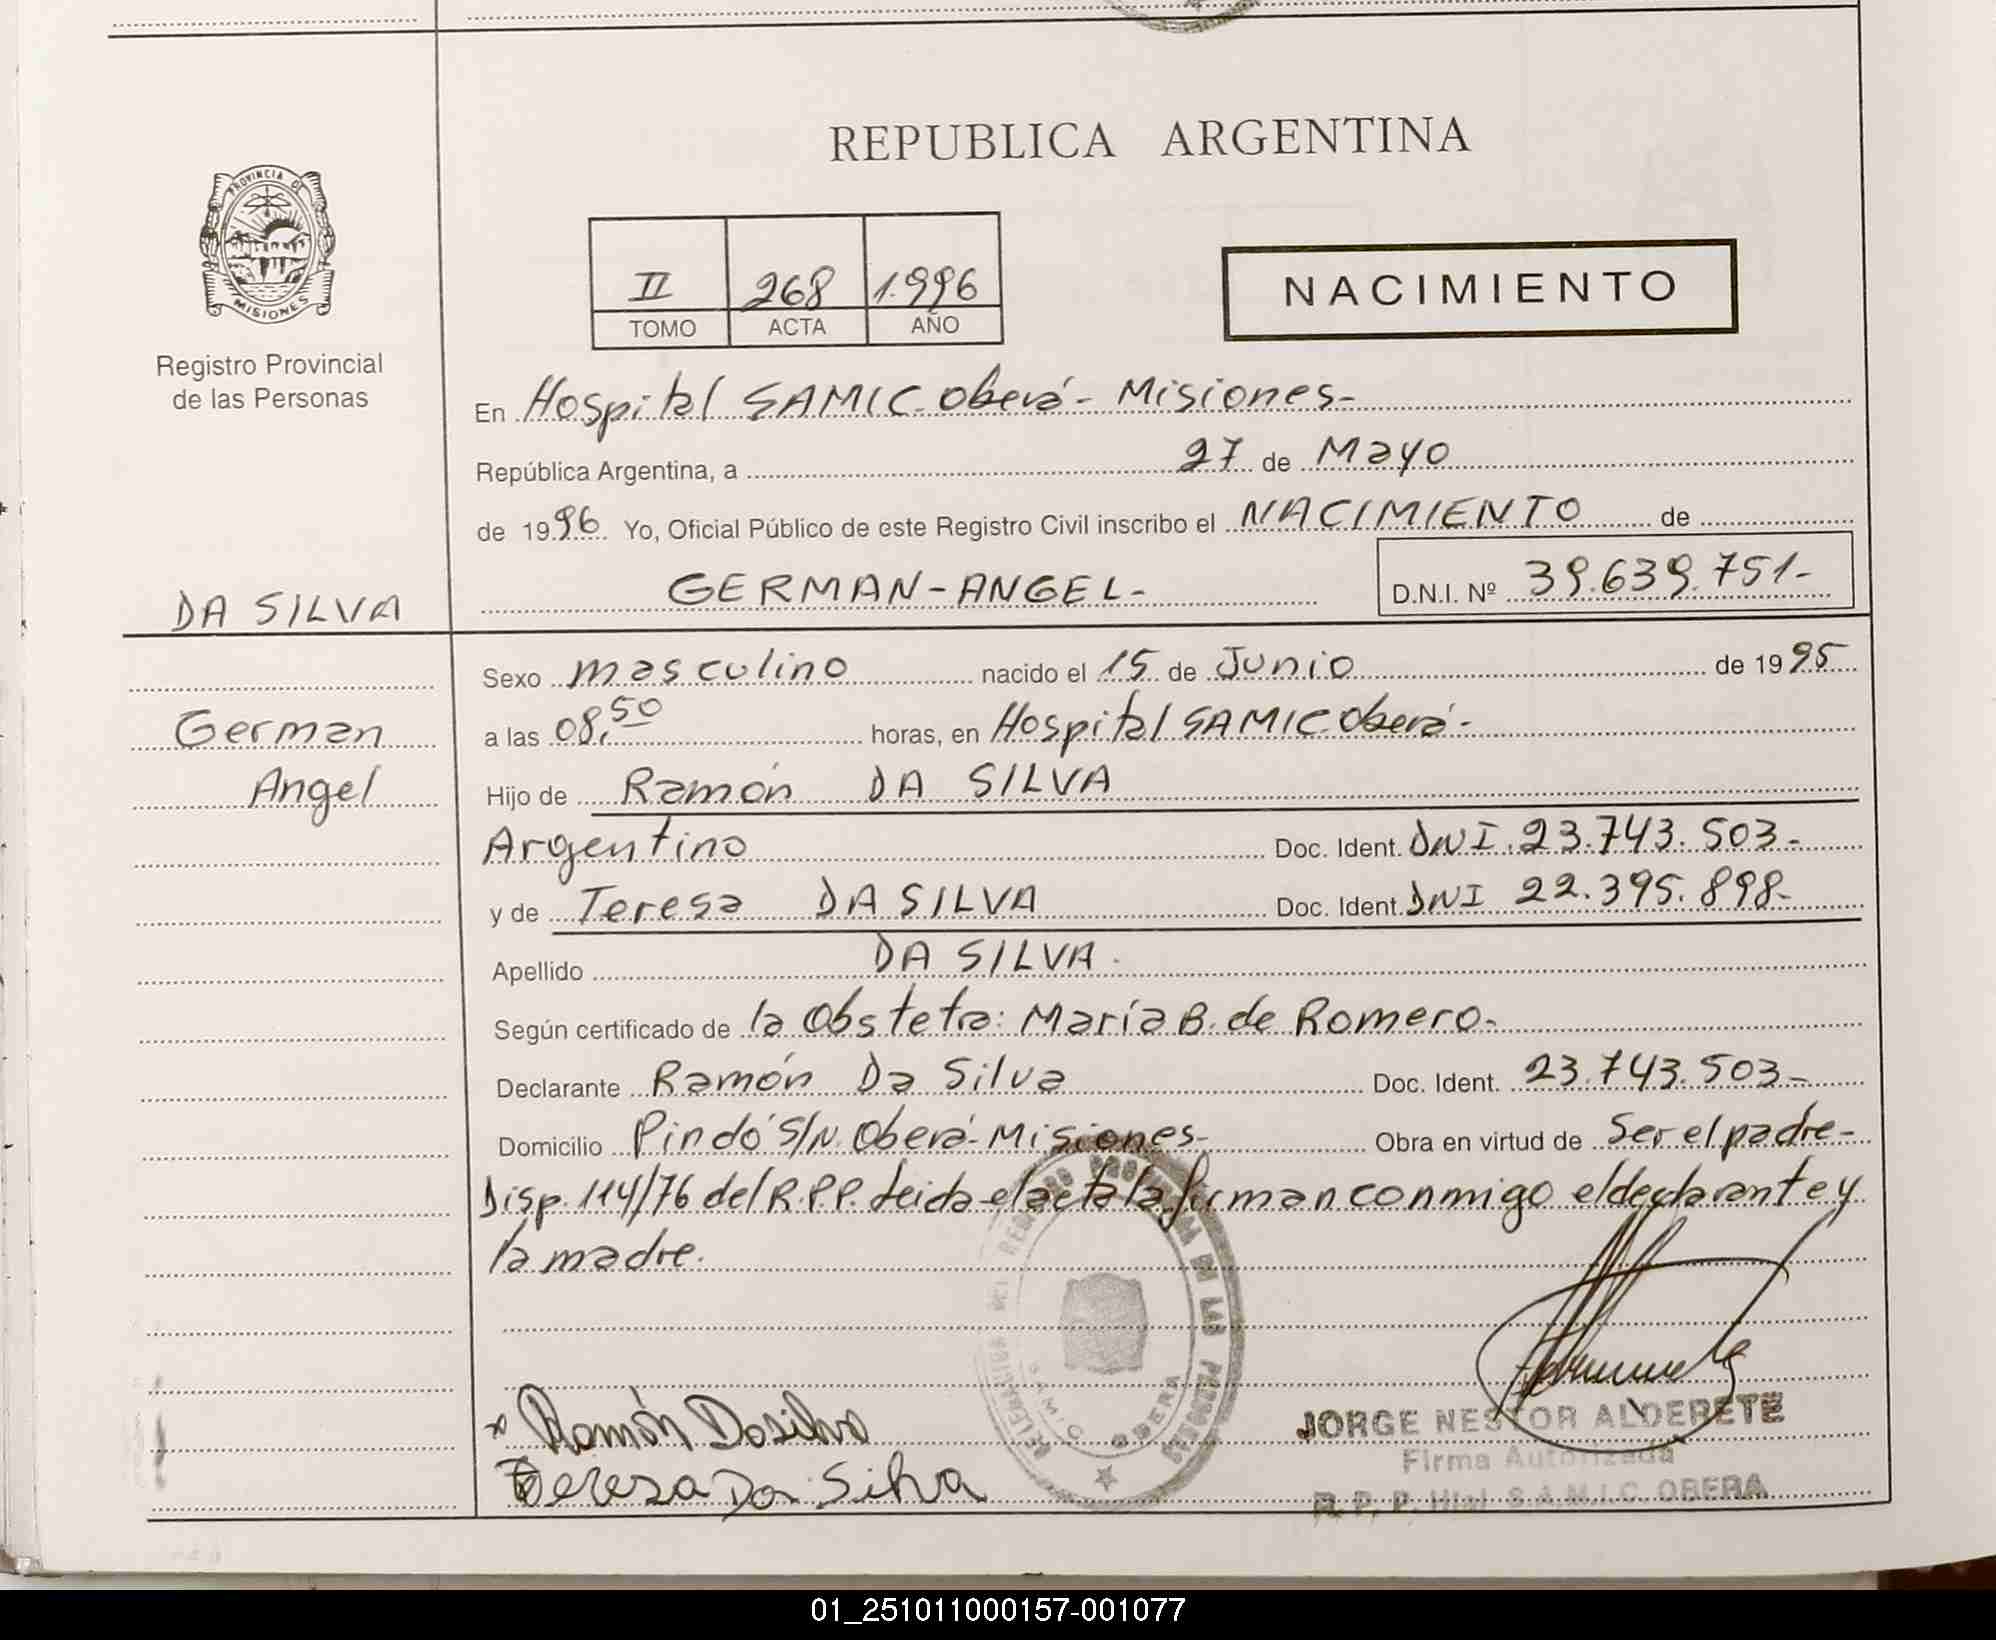 REPUBLICA ARGENTINA
PROVINCIA DE
MISIONES
Registro Provincial
de las Personas
II 268 1.996
TOMO ACTA AÑO
NACIMIENTO
En Hospital SAMIC. Oberá - Misiones-
República Argentina, a 27 de Mayo
de 1996 Yo, Oficial Público de este Registro Civil inscribo el NACIMIENTO de
DA SILVA
GERMAN-ANGEL-
D.N.I. Nº 39.639.751-
German
Angel
Sexo masculino nacido el 15 de Junio de 1995
a las 08,50 horas, en Hospital SAMIC. Oberá-
Hijo de Ramón DA SILVA
Argentino Doc. Ident. DNI. 23.743.503-
y de Teresa DA SILVA Doc. Ident. DNI 22.395.898-
Apellido DA SILVA.
Según certificado de la Obstetra: María B. de Romero-
Declarante Ramón Da Silva Doc. Ident. 23.743.503-
Domicilio Pindó S/N. Oberá-Misiones- Obra en virtud de Ser el padre-
Disp. 114/76 del R.P.P. Leida el acta la firman conmigo el declarante y
la madre.
x Ramón Dasilva
Teresa Da Silva
DELEGACION DEL REGISTRO PROVINCIAL DE LAS PERSONAS
SAMIC OBERA
JORGE NESTOR ALDERETE
Firma Autorizada
R. P. P. Htal S.A.M.I.C. OBERA
01_251011000157-001077